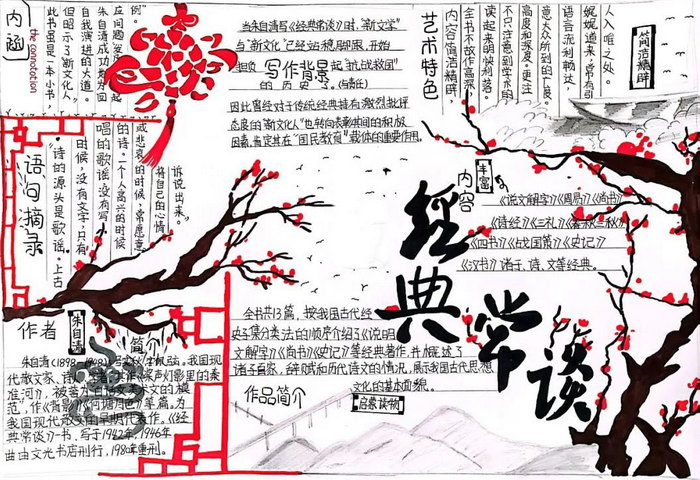 内涵
the connotation
此书虽是一本小书,
但昭示了新文化人
自我演进的大道。
朱自清成功地为回
例。
当朱自清写《经典常谈》时,“新文学”
与“新文化”已经站稳脚跟,开始
担负
写作背景
起“抗战救国”
的历史了。(与责任)
因此曾经对于传统经典持有激烈批评
态度的“新文化人”也转向表彰其间的积极
因素,肯定其在“国民教育”载体的重要作用。
艺术特色
内容简洁精辟,
全书不故作高深,
读起来明快利落。
不只注意到学术的
高度和深度。更注
意大众所到的广度。
语言流利畅达,
娓娓道来,常有引
人入唯之处。
简洁精辟
语句摘录
“诗的源头是歌谣。上古
时候,没有文字,只有
唱的歌谣没有写
的诗。一个人高兴的时候
或悲哀的时候,常愿意
将自己的心情
诉说出来。
内容
丰富
《说文解字》《周易》《尚书》
《诗经》《三礼》《春秋三秋》
《四书》《战国策》《史记》
《汉书》诸子、诗、文等经典。
经典常谈
作者
朱自清
简介
朱自清(1898-1948)
我国现
代散文家、诗
桨声灯影里的秦
淮河》,被誉为
文的模
范,作《背影》《荷塘月色》等篇,为
我国现代散文的早期代表作。《经
典常谈》一书,写于1942年,1946年
曲由文光书店刊行,1980年重刊。
全书共13篇,按我国古代经
史子集分类法的顺序介绍了《说明
文解字》《尚书》《史记》等经典著作,并概述了
诸子百家,辞赋和历代诗文的情况,展示我国古代思想
文化的基本面貌。
作品简介
启蒙读物